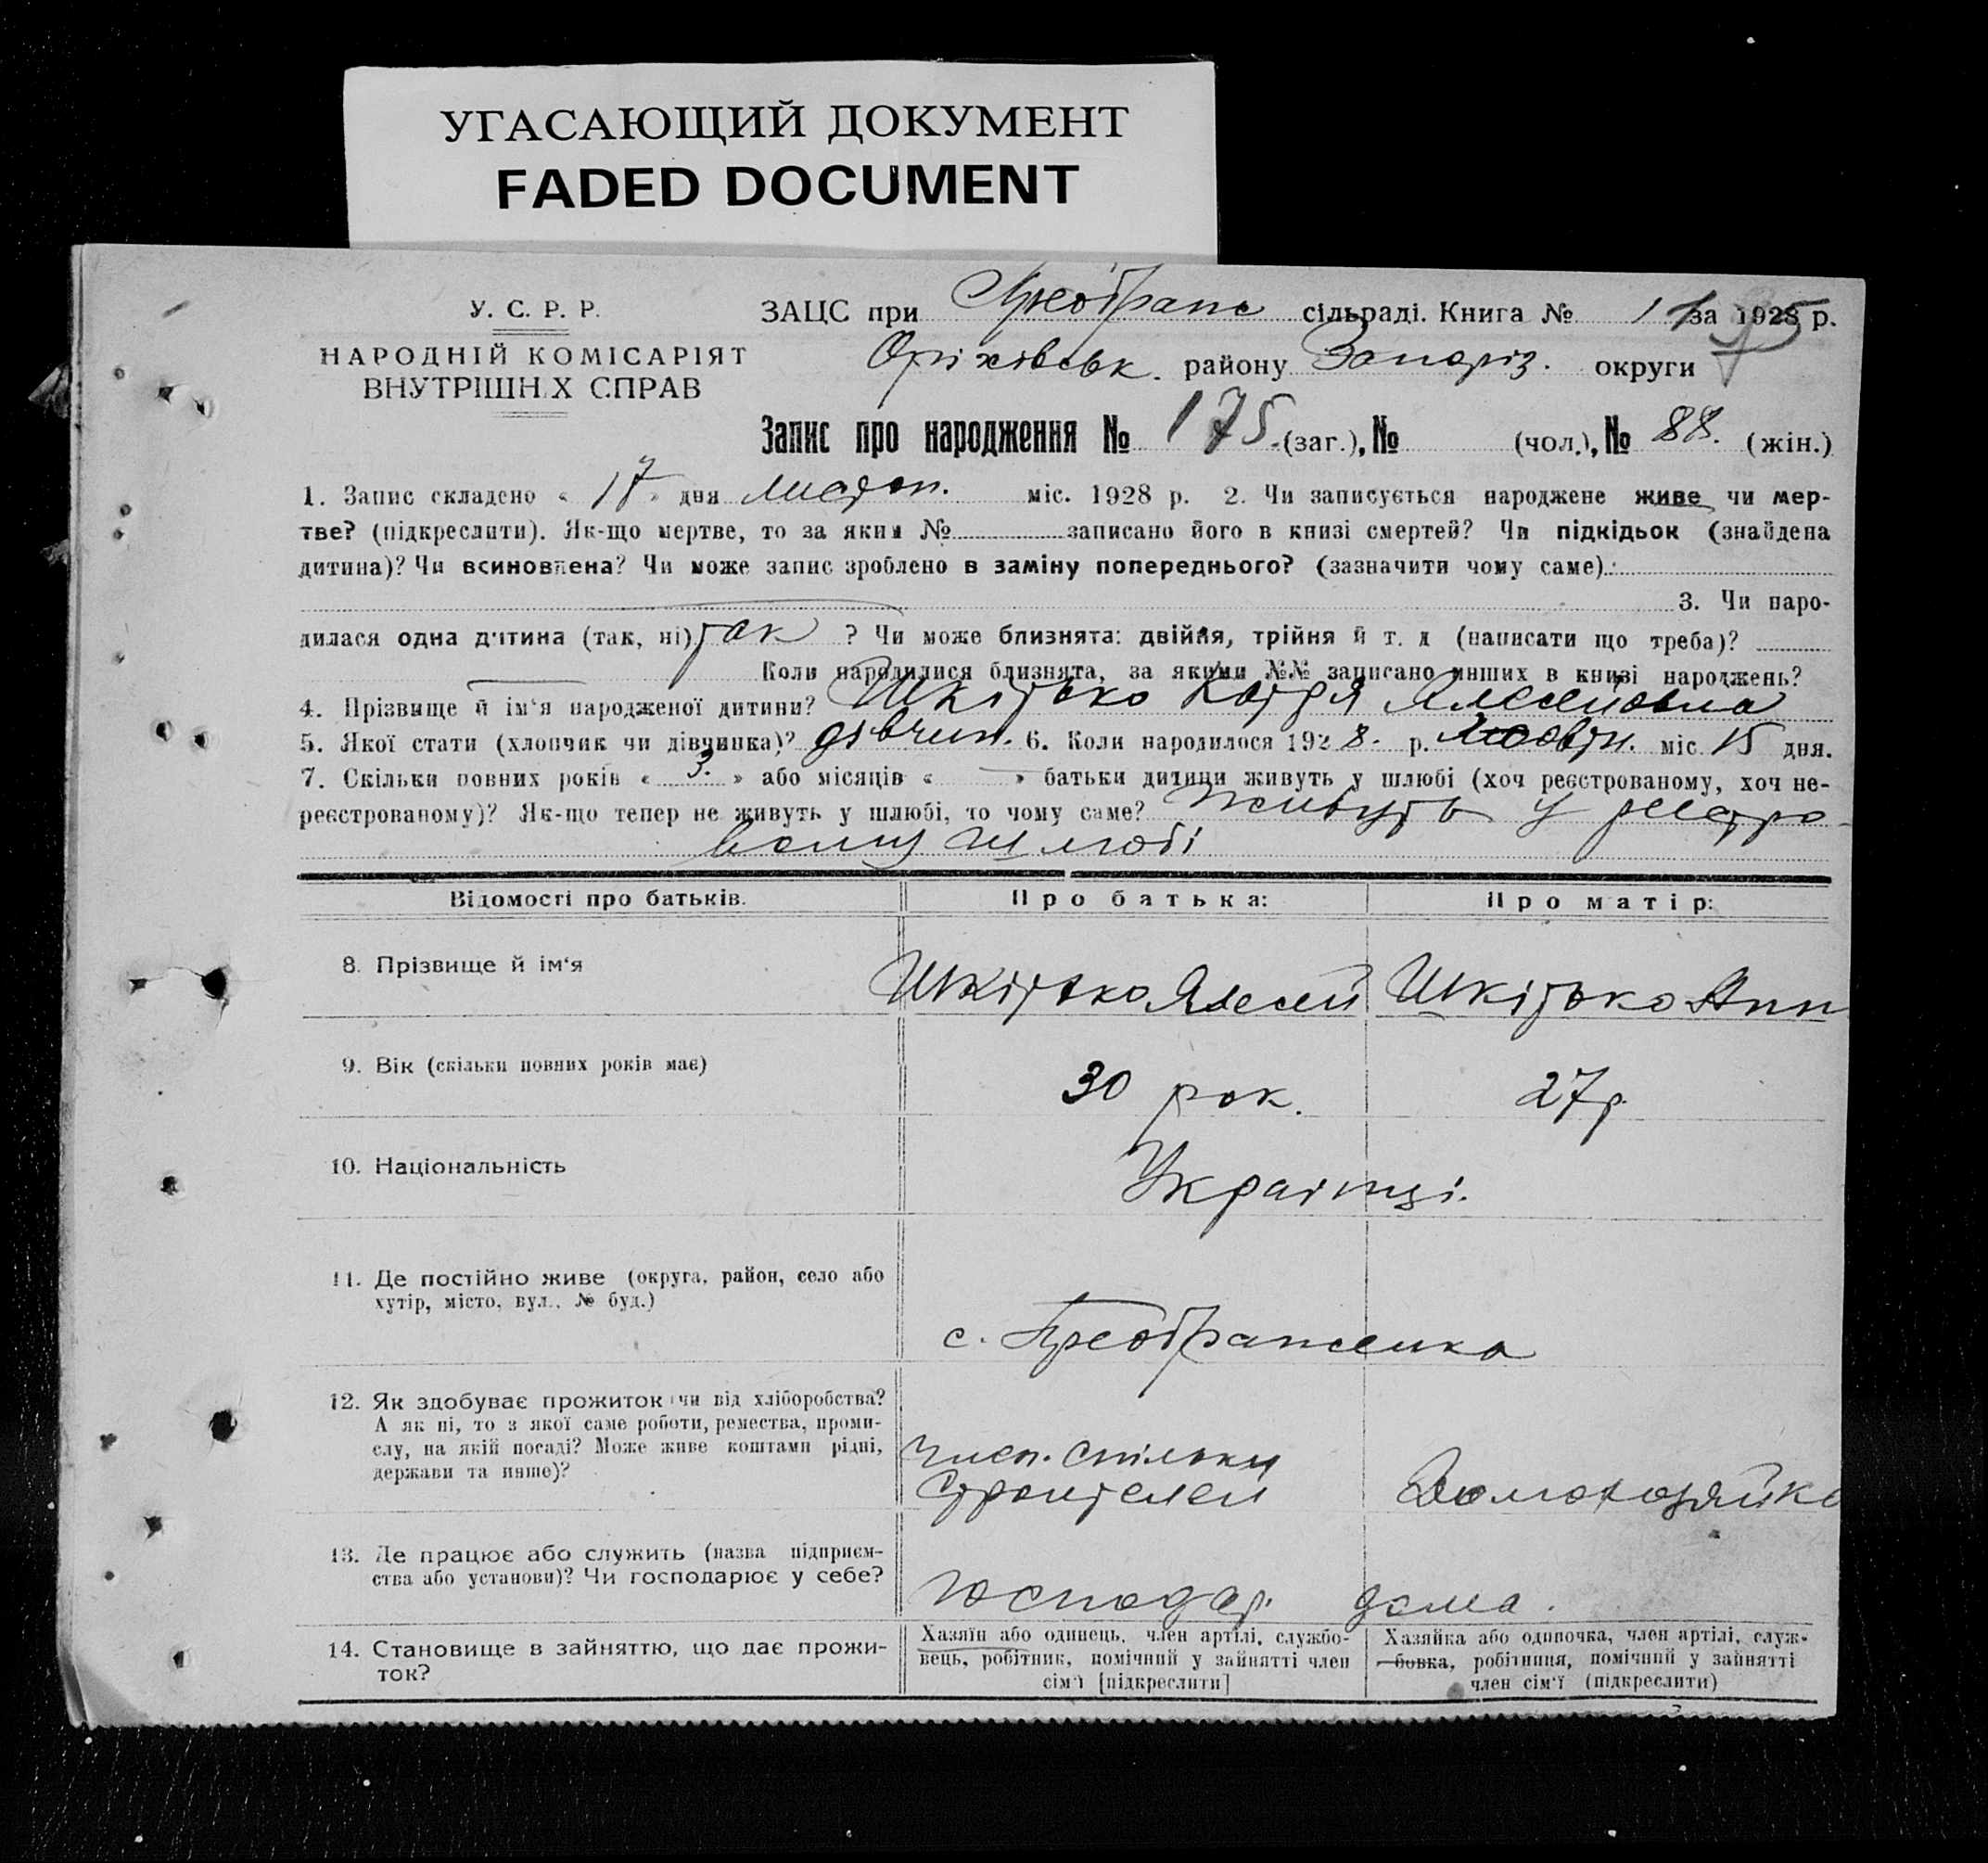 УГАСАЮЩИЙ ДОКУМЕНТ
FADED DOCUMENT
У. С. Р. Р.
НАРОДНІЙ КОМІСАРІЯТ
ВНУТРІШН.Х СПРАВ
ЗАЦС при Преображ сільраді. Книга № 1 за 1928 р.
Оріхівськ. району Запоріз. округи
Запис про народження № 175 (заг.), № (чол.), № 88. (жін.)
1. Запис складено « 17 » дня листоп. міс. 1928 р. 2. Чи записується народжене живе чи мер-
тве? (підкреслити). Як-що мертве, то за яким № записано його в книзі смертей? Чи підкідьок (знайдена
дитина)? Чи всиновлена? Чи може запис зроблено в заміну попереднього? (зазначити чому саме).
3. Чи наро-
дилася одна дитина (так, ні) так ? Чи може близнята: двійня, трійня й т. д (написати що треба)?
Коли народилися близнята, за якими №№ записано инших в книзі народжень?
4. Прізвище й ім'я народженої дитини? Шкітько Катря Алесейовна
5. Якої статі (хлопчик чи дівчинка)? дівчин. 6. Коли народилося 1928. р. Жовтн. міс. 15 дня.
7. Скільки повних років « 3. » або місяців « — » батьки дитини живуть у шлюбі (хоч реєстрованому, хоч не-
реєстрованому)? Як-що тепер не живуть у шлюбі, то чому саме? Живуть у реєстро-
ваному шлюбі
Відомості про батьків. Про батька: Про матір:
8. Прізвище й ім'я Шкітько Алесей Шкітько Анн
9. Вік (скільки повних років має) 30 рок. 27 р.
10. Національність Українці.
11. Де постійно живе (округа, район, село або
хутір, місто, вул., № буд.)
с. Преображенка
12. Як здобуває прожиток чи від хліборобства?
А як ні, то з якої саме роботи, ремества, проми-
слу, на якій посаді? Може живе коштами рідні,
держави та инше)?
член. спільки
Строителей Домохозяйка
13. Де працює або служить (назва підприєм-
ства або установи)? Чи господарює у себе?
господар. дома.
14. Становище в зайняттю, що дає прожи-
ток?
Хазяїн або одинець, член артілі, службо-
вець, робітник, помічний у зайнятті член
сім'ї [підкреслити]
Хазяйка або одиночка, член артілі, служ-
бовка, робітниця, помічний у зайнятті
член сім'ї (підкреслити)